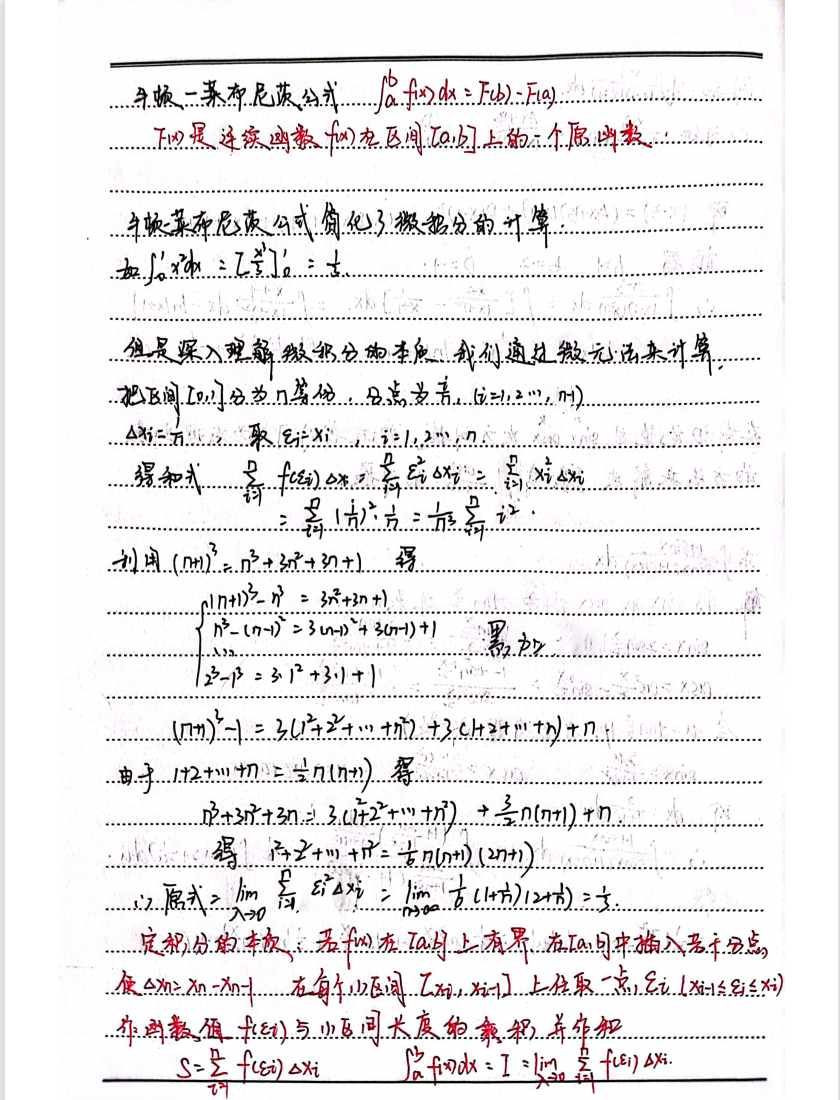 牛顿-莱布尼茨公式 ∫ₐᵇ f(x)dx = F(b)-F(a)
F(x)是连续函数f(x)在区间[a,b]上的一个原函数.
牛顿-莱布尼茨公式简化了微积分的计算.
如∫₀¹x²dx = [x³/3]₀¹ = 1/3.
但是深入理解微积分的本质,我们通过微元法来计算,
把区间[0,1]分为n等份,分点为i/n,(i=1,2…,n-1)
Δxi=1/n, 取εi=xi, i=1,2…,n
得和式 Σⁿᵢ₌₁ f(εi)Δxi = Σⁿᵢ₌₁ εi²Δxi = Σⁿᵢ₌₁ xi²Δxi
= Σⁿᵢ₌₁ (i/n)²·1/n = 1/n³ Σⁿᵢ₌₁ i².
利用(n+1)³=n³+3n²+3n+1 得
(n+1)³-n³ = 3n²+3n+1
n³-(n-1)² = 3(n-1)²+3(n-1)+1 累加
……
2³-1³ = 3·1²+3·1+1
(n+1)³-1 = 3(1²+2²+…+n²)+3(1+2+…+n)+n
由于 1+2+…+n = 1/2 n(n+1) 得
n³+3n²+3n = 3(1²+2²+…+n²) + 3/2 n(n+1)+n.
得 1²+2²+…+n² = 1/6 n(n+1)(2n+1)
∴ 原式 = lim λ→0 Σⁿᵢ₌₁ εi²Δxi = lim n→∞ 1/6 (1+1/n)(2+1/n) = 1/3.
定积分的本质:若f(x)在[a,b]上有界,在[a,b]中插入若干分点,
使Δxn=xn-xn-1 在每个小区间[xi,xi-1]上任取一点,εi(xi-1≤εi≤xi)
作函数值f(εi)与小区间长度的乘积,并作和
S=Σⁿᵢ₌₁ f(εi)Δxi ∫ₐᵇ f(x)dx = I = lim λ→0 Σⁿᵢ₌₁ f(εi)Δxi.